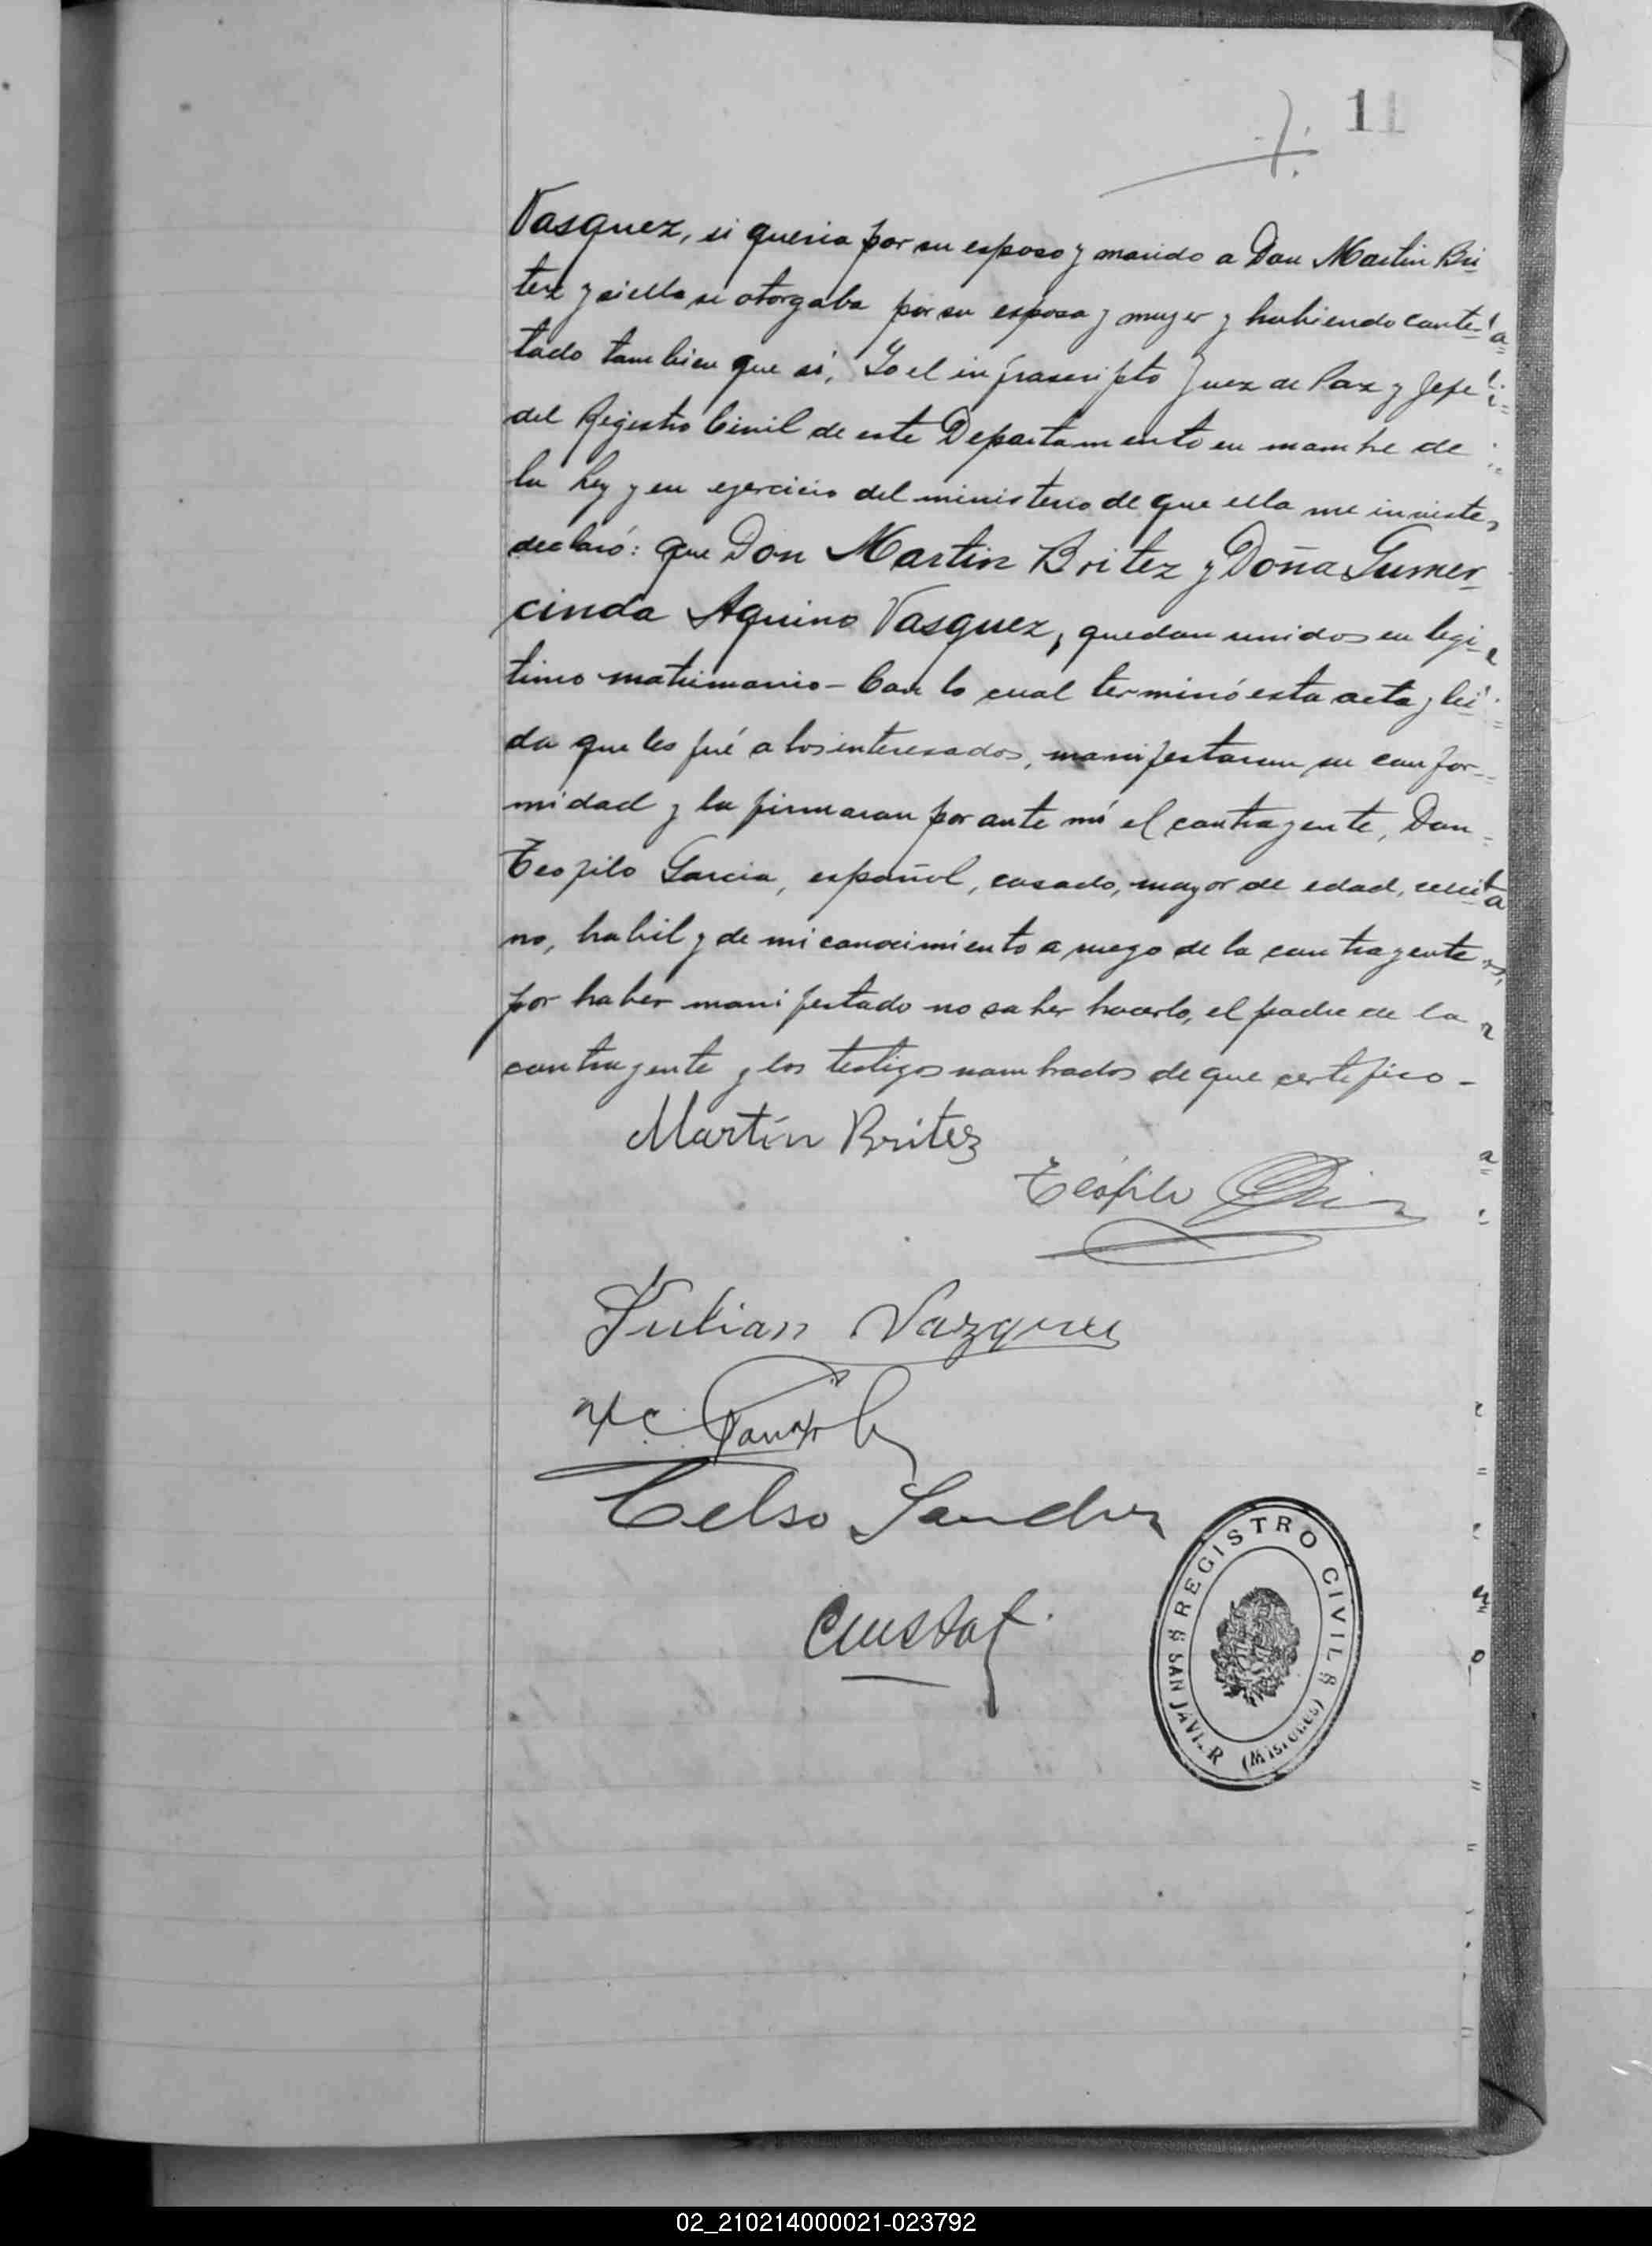 11
Vasquez, si queria por su esposo y marido a Don Martin Bri
tez y si ella se otorgaba por su esposa y muger y habiendo contes
tado tambien que si, Yo el infrascripto Juez de Paz y Jefe
del Registro Civil de este Departamento en nombre de
la Ley y en ejercicio del ministerio de que ella me inviste,
declaró: que Don Martin Britez y Doña Gumer
cinda Aquino Vasquez, quedan unidos en legi
timo matrimonio - Con lo cual terminó esta acta y lei
da que les fué a los interesados, manifestaron su confor-
midad y la firmaron por ante mi el contrayente, Don
Teofilo Garcia, español, casado, mayor de edad,
no, habil y de mi conocimiento a ruego de la contrayente
por haber manifestado no saber hacerlo, el padre de la
contrayente y los testigos nombrados de que certifico -
Martín Britez
Teófilo
Julian Vazquez
Celso Sanchez
REGISTRO CIVIL
SAN JAVIER (Misiones)
02_210214000021-023792